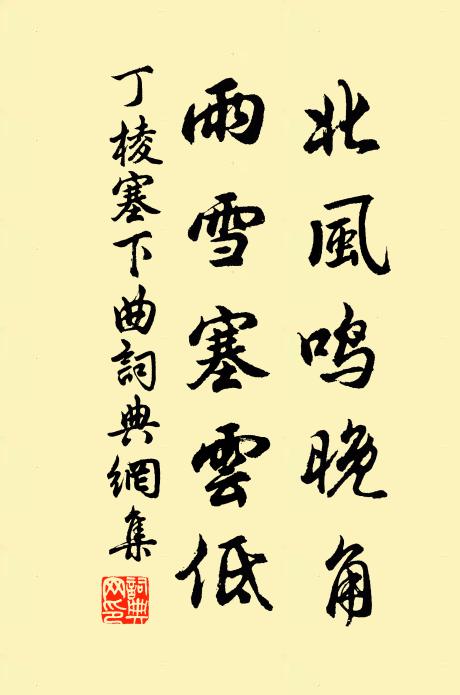 北風鸣晚角
雨雪塞雲低
丁棱塞下曲詞典網集
詞典网印